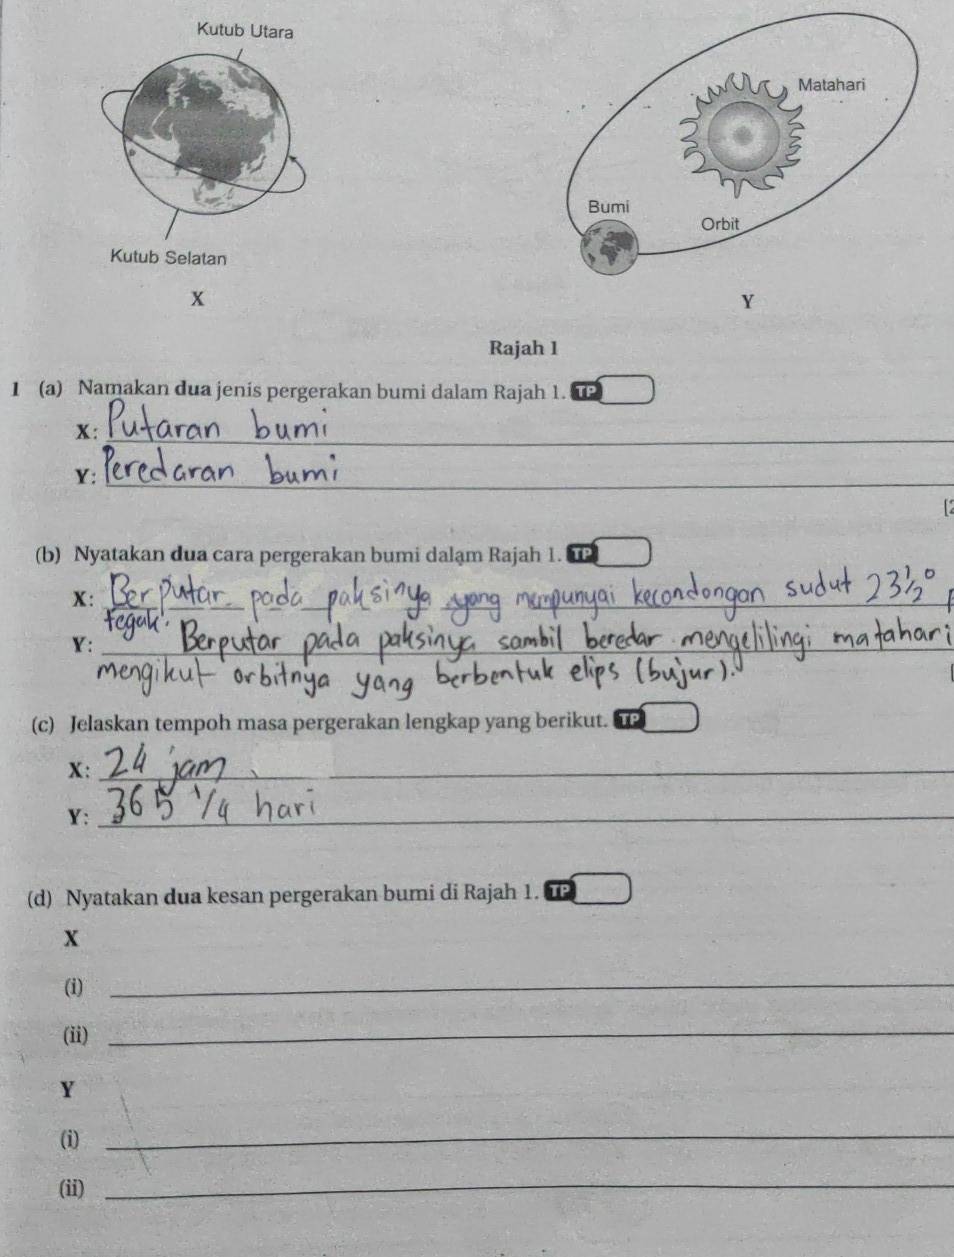 Kutub Utara
Matahari
Bumi
Orbit
Kutub Selatan
X
Y
Rajah 1
1 (a) Namakan dua jenis pergerakan bumi dalam Rajah 1. TP
X: Putaran bumi
Y: Peredaran bumi
[2
(b) Nyatakan dua cara pergerakan bumi dalam Rajah 1. TP
X: Berputar pada paksinya yang mempunyai kecondongan sudut 23½°
tegak.
Y: Berputar pada paksinya sambil beredar mengelilingi matahari
mengikut orbitnya yang berbentuk elips (bujur).
(c) Jelaskan tempoh masa pergerakan lengkap yang berikut. TP
X: 24 jam
Y: 365 1/4 hari
(d) Nyatakan dua kesan pergerakan bumi di Rajah 1. TP
X
(i)
(ii)
Y
(i)
(ii)